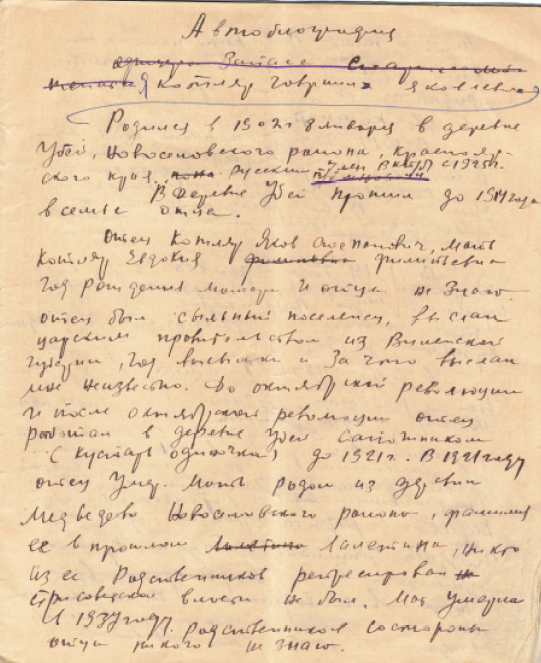 Автобиография
Запаса
Я Котляр Гавриил Яковлевич
Родился в 1907г 8 января в деревне
Убей, Новоселовского района, Краснояр-
ского края, русский член ВКП(б) с 1925г.
В деревне Убей прожил до 1914 года
в семье отца.
Отец Котляр Яков Степанович, мать
Котляр Евдокия Филиповна Филипьевна
Год рождения матери и отца не знаю.
Отец был ссыльный поселенец, выслан
царским правительством из Виленской
губернии, год высылки и за что выслан
мне неизвестно. До октябрьской революции
и после октябрьской революции отец
работал в деревне Убей сапожником
(кустарь одиночка) до 1921г. В 1921 году
отец умер. Мать родом из деревни
Медведево Новоселовского района, фамилия
ее в прошлом Лалетина, никто
из ее родственников репрессирован
при советской власти не был. Мать умерла
в 1937 году. Родственников со стороны
отца никого не знаю.